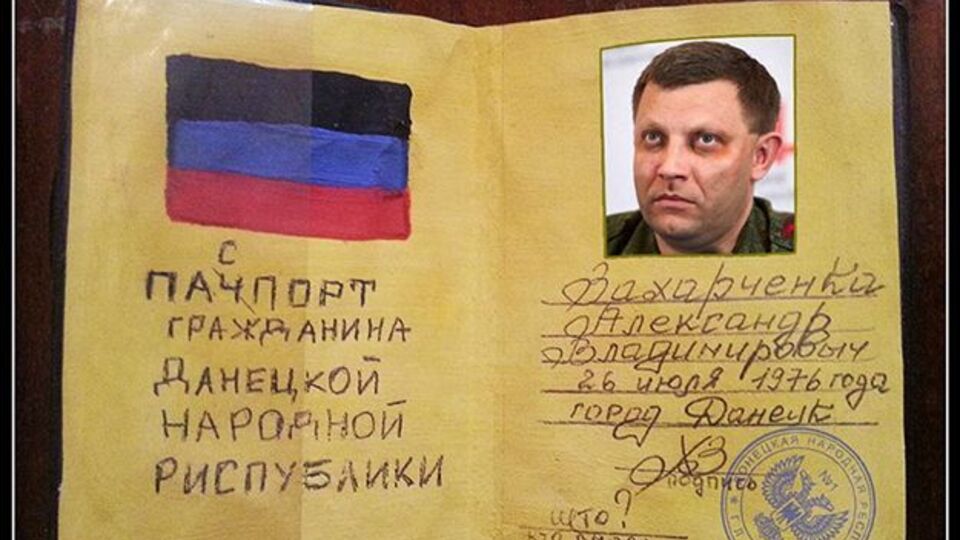 с
ПАЧПОРТ
ГРАЖДАНИНА
ДАНЕЦКОЙ
НАРОДНОЙ
РИСПУБЛИКИ
Захарченка
Александр
Владимировыч
26 июля 1976 года
город Данецк
ХЗ
подпись
што?
ДОНЕЦКАЯ НАРОДНАЯ
№1